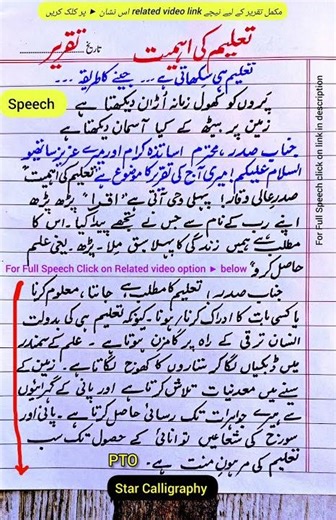 مکمل تقریر کے لیے نیچے related video link اس نشان ► پر کلک کریں
تعلیم کی اہمیت
تقریر
تاریخ
تعلیم ہی سکھاتی ہے --- جینے کا طریقہ ---
Speech
پَروں کو کھول زمانہ اُڑان دیکھتا ہے
زمین پر بیٹھ کے کیا آسمان دیکھتا ہے
جناب صدر، محترم اساتذہ کرام اور میرے عزیز ساتھیو
السلام علیکم! میری آج کی تقریر کا موضوع ہے "تعلیم کی اہمیت"
صدرِ عالی وقار! پہلی وحی آتی ہے "اقرا" پڑھ پڑھ
اپنے رب کے نام سے جس نے تجھے پیدا کیا۔ اس کا
مطلب ہے ہمیں زندگی کا پہلا سبق ملا۔ پڑھ۔ یعنی علم
حاصل کرو"
For Full Speech Click on Related video option ► below
جناب صدر! تعلیم کا مطلب ہے جاننا، معلوم کرنا
یا کسی بات کا ادراک کرنا، ہونا۔ کیونکہ تعلیم ہی کی بدولت
انسان ترقی کے راہ پر گامزن ہوتا ہے۔ علم کے سمندر
میں ڈبکیاں لگا کر ستاروں کا کھوج لگاتا ہے۔ زمین کے
سینے میں معدنیات تلاش کرتا ہے اور پانی کے گہرائیوں
سے ہیرے جواہرات تک رسائی حاصل کرتا ہے۔ پانی اور
سورج کی شعاعیں توانائی کے حصول تک سب
تعلیم کی مرہون منت ہے۔
PTO
Star Calligraphy
For Full Speech click on link in description